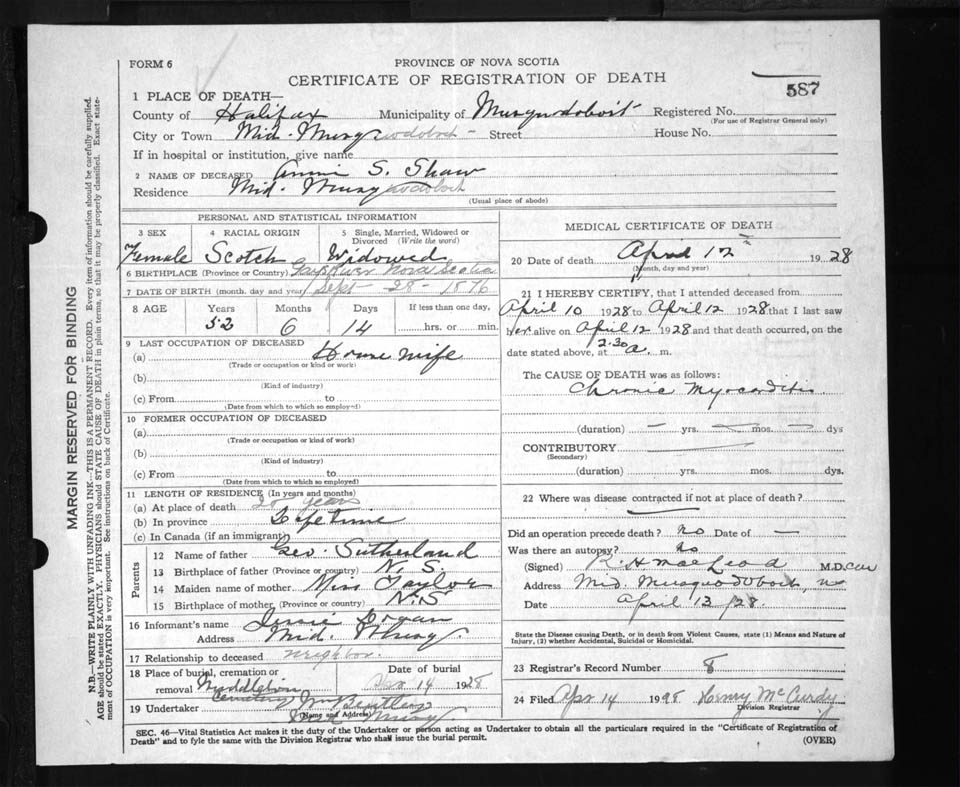 FORM 6
PROVINCE OF NOVA SCOTIA
CERTIFICATE OF REGISTRATION OF DEATH
587
1 PLACE OF DEATH—
County of Halifax Municipality of Musquodoboit Registered No.
(For use of Registrar General only)
City or Town Mid. Musquodoboit Street House No.
If in hospital or institution, give name
2 NAME OF DECEASED Annie S. Shaw
Residence Mid. Musquodoboit
(Usual place of abode)
PERSONAL AND STATISTICAL INFORMATION
3 SEX 4 RACIAL ORIGIN 5 Single, Married, Widowed or Divorced (Write the word)
Female Scotch Widowed
6 BIRTHPLACE (Province or Country) Gays River Nova Scotia
7 DATE OF BIRTH (month, day and year) Sept - 28 - 1876
8 AGE Years Months Days If less than one day,
52 6 14 hrs. or min.
9 LAST OCCUPATION OF DECEASED
(a) House wife
(Trade or occupation or kind or work)
(b)
(Kind of industry)
(c) From to
(Date from which to which so employed)
10 FORMER OCCUPATION OF DECEASED
(a)
(Trade or occupation or kind of work)
(b)
(Kind of industry)
(c) From to
(Date from which to which so employed)
11 LENGTH OF RESIDENCE (In years and months)
(a) At place of death 20 years
(b) In province Lifetime
(c) In Canada (if an immigrant)
Parents
12 Name of father Geo. Sutherland
13 Birthplace of father (Province or country) N.S.
14 Maiden name of mother Miss Taylor
15 Birthplace of mother (Province or country) N.S
16 Informant's name Jessie
Address Mid. Musq.
17 Relationship to deceased neighbor.
18 Place of burial, cremation or removal Date of burial
Cemetery Apr 14 1928
19 Undertaker Wm Bentley
(Name and Address) Musq.
MEDICAL CERTIFICATE OF DEATH
20 Date of death April 12 1928
(Month, day and year)
21 I HEREBY CERTIFY, that I attended deceased from
April 10 1928 to April 12 1928 that I last saw
her alive on April 12 1928 and that death occurred, on the
date stated above, at 2.30 a. m.
The CAUSE OF DEATH was as follows:
Chronic Myocarditis
(duration) — yrs. — mos. — dys
CONTRIBUTORY
(Secondary)
(duration) yrs. mos. dys.
22 Where was disease contracted if not at place of death?
Did an operation precede death? no Date of —
Was there an autopsy? no
(Signed) R. H MacLeod M.D.
Address Mid. Musquodoboit, NS
Date April 13/28.
State the Disease causing Death, or in death from Violent Causes, state (1) Means and Nature of
Injury, (2) whether Accidental, Suicidal or Homicidal.
23 Registrar's Record Number 8
24 Filed Apr 14 1928 Henry McCurdy
Division Registrar
SEC. 46—Vital Statistics Act makes it the duty of the Undertaker or person acting as Undertaker to obtain all the particulars required in the "Certificate of Registration of
Death" and to fyle the same with the Division Registrar who shall issue the burial permit.
(OVER)
MARGIN RESERVED FOR BINDING
N.B.—WRITE PLAINLY WITH UNFADING INK—THIS IS A PERMANENT RECORD. Every item of information should be carefully supplied.
AGE should be stated EXACTLY. PHYSICIANS should STATE CAUSE OF DEATH in plain terms, so that it may be properly classified. Exact state-
ment of OCCUPATION is very important. See instructions on back of Certificate.